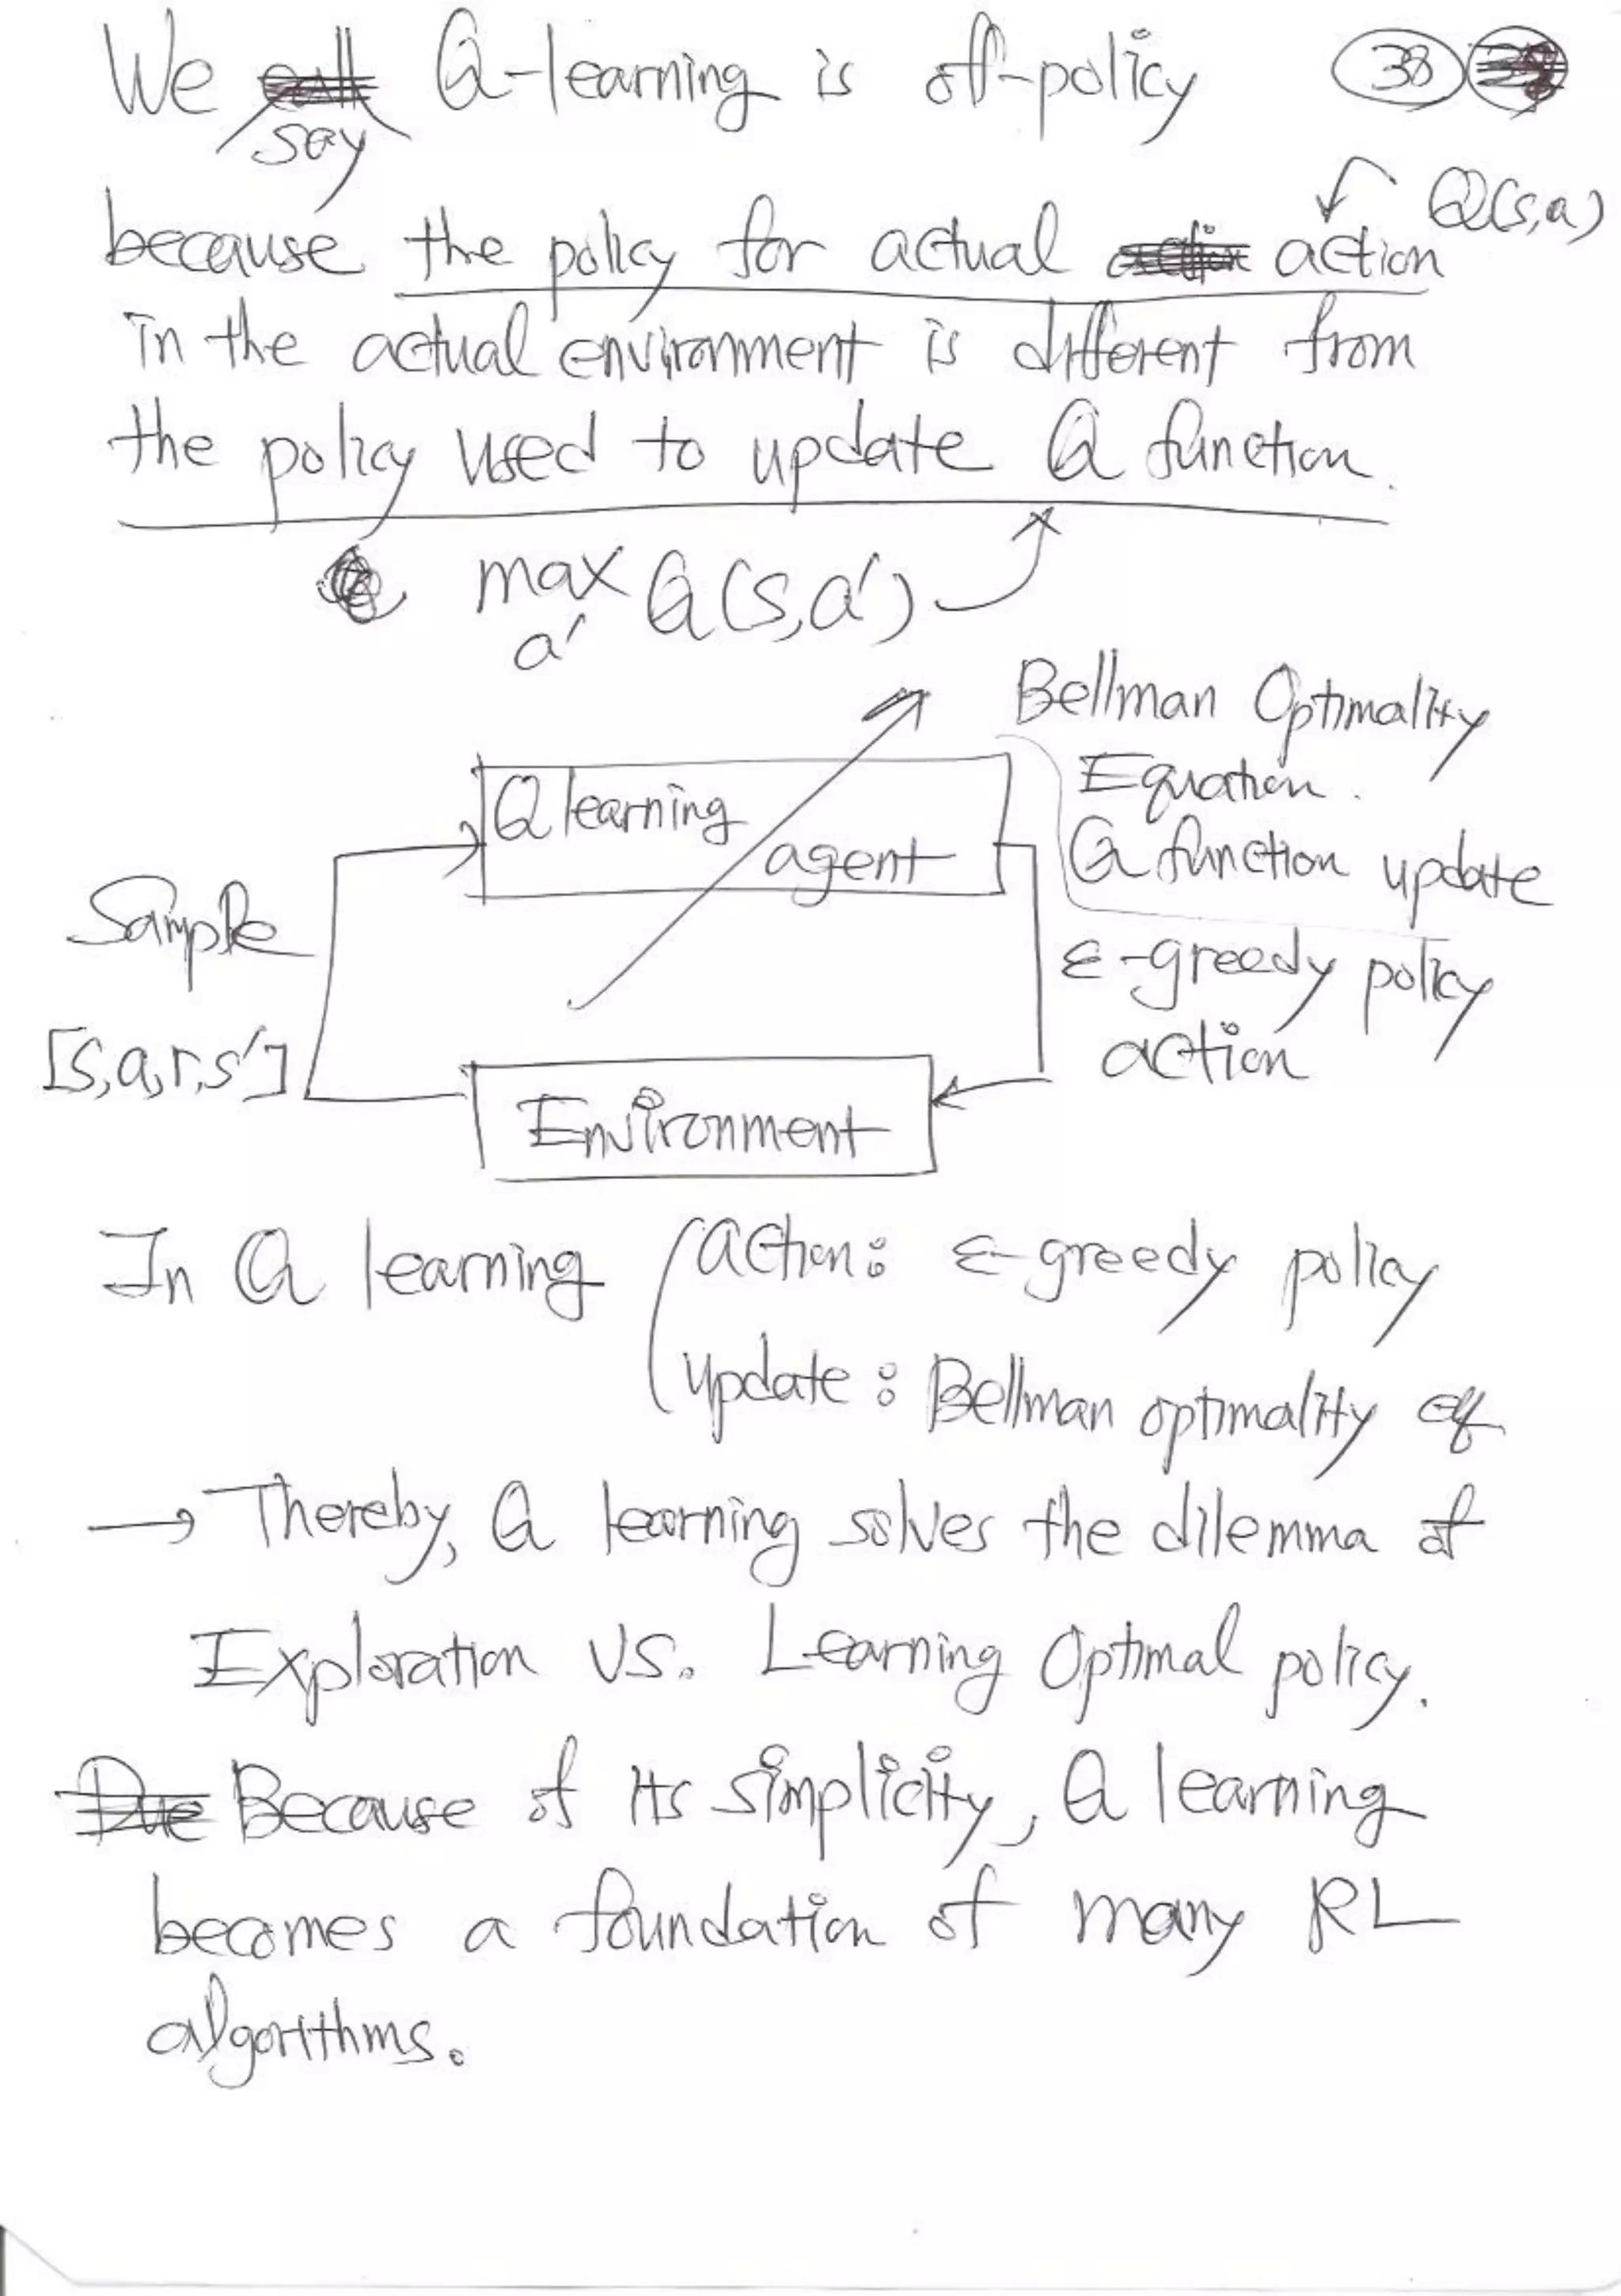 We say Q-learning is off-policy 38
Q(s,a)
because the policy for actual action
in the actual environment is different from
the policy used to update Q function.
max Q(s,a')
a'
Bellman Optimality
Equation.
Q function update
Q learning
agent
Sample
[s,a,r,s']
ε-greedy policy
action
Environment
In Q learning action: ε-greedy policy
update: Bellman optimality eq
→ Thereby, Q learning solves the dilemma of
Exploration vs. Learning Optimal policy.
Due Because of its simplicity, Q learning
becomes a foundation of many RL
algorithms.